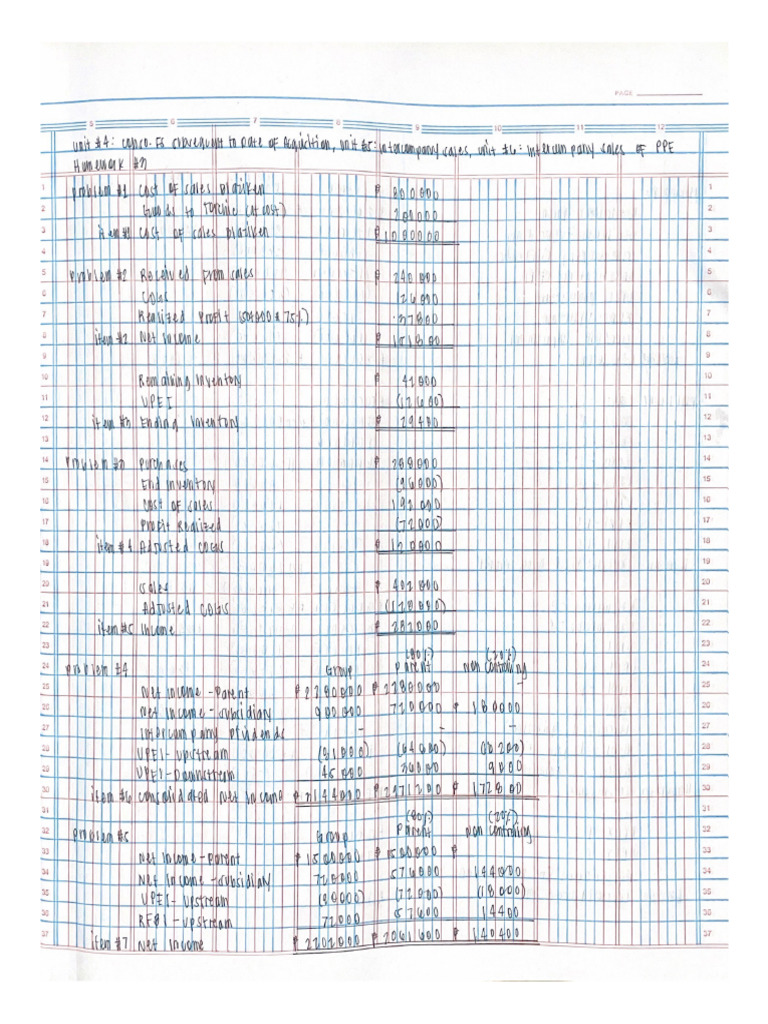 PAGE
5 6 7 8 9 10 11 12
Unit #4: Conso. FS Subsequent to Date of Acquisition, Unit #5: Intercompany Sales, Unit #6: Intercompany Sales of PPE
Homework #3
1 Problem #1 Cost of sales Platiken ₱ 800000 1
2 Goods to (at cost) 280000 2
3 Item #1 Cost of sales Platiken ₱ 1080000 3
4 4
5 Problem #2 Received from sales ₱ 240000 5
6 COGS 126000 6
7 Realized Profit (504000 x 75%) 37800 7
8 Item #2 Net income ₱ 151800 8
9 9
10 Remaining Inventory ₱ 42000 10
11 UPEI (12600) 11
12 Item #3 Ending Inventory ₱ 29400 12
13 13
14 Problem #3 Purchases ₱ 288000 14
15 End Inventory (96000) 15
16 Cost of sales 192000 16
17 Profit Realized (72000) 17
18 Item #4 Adjusted COGS ₱ 120000 18
19 19
20 Sales ₱ 402000 20
21 Adjusted COGS (120000) 21
22 Item #5 Income ₱ 282000 22
23 (80%) (20%) 23
24 Problem #4 Group Parent Non Controlling 24
25 Net income - Parent ₱ 2280000 ₱ 2280000 - 25
26 Net income - subsidiary 900000 720000 ₱ 180000 26
27 Intercompany Dividends - - - 27
28 UPEI - Upstream (81000) (64800) (16200) 28
29 UPEI - Downstream 45000 36000 9000 29
30 Item #6 Consolidated Net Income ₱ 3144000 ₱ 2971200 ₱ 172800 30
31 (80%) (20%) 31
32 Problem #5 Group Parent Non Controlling 32
33 Net Income - Parent ₱ 1500000 ₱ 1500000 ₱ 33
34 Net Income - subsidiary 720000 576000 144000 34
35 UPEI - Upstream (90000) (72000) (18000) 35
36 RPBI - Upstream 72000 57600 14400 36
37 Item #7 Net Income ₱ 2202000 ₱ 2061600 ₱ 140400 37